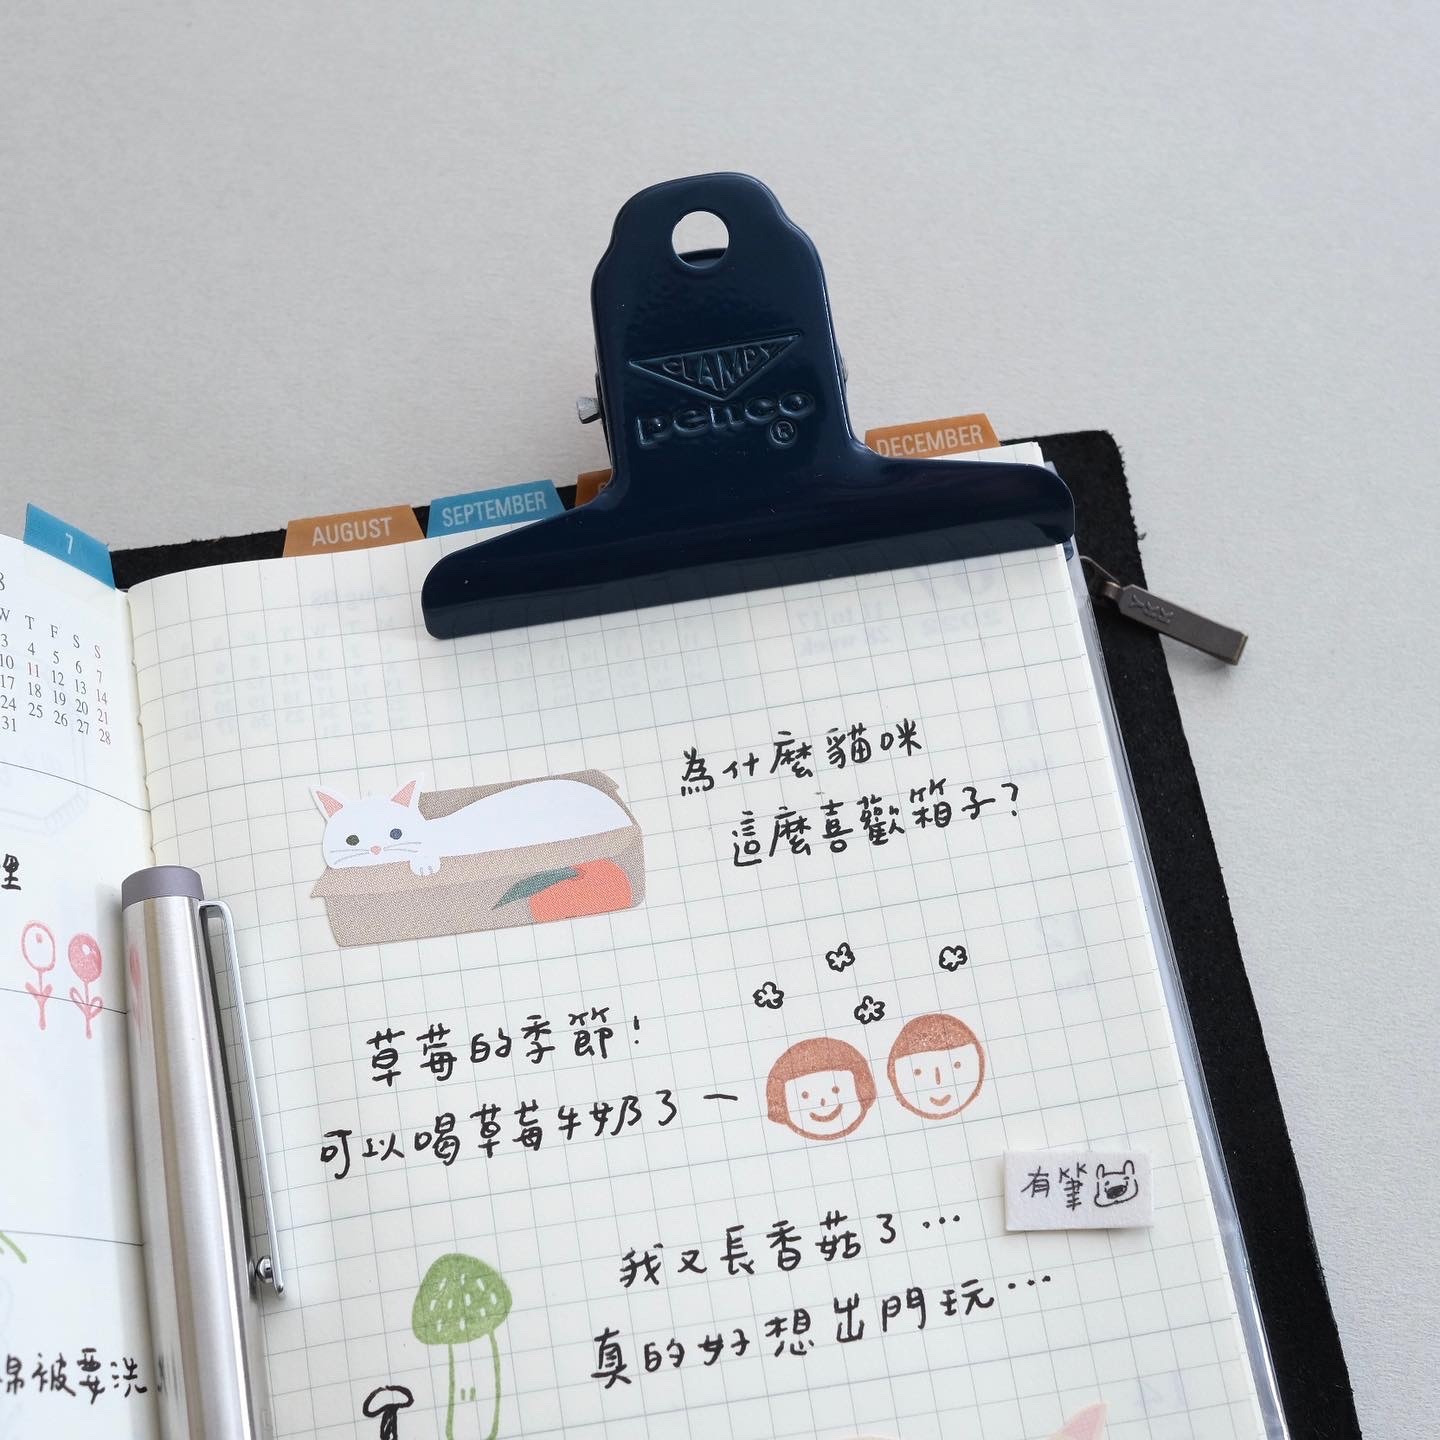 CLAMPY
penco
®
AUGUST
SEPTEMBER
DECEMBER
7
W T F S S
3 4 5 6 7
10 11 12 13 14
17 18 19 20 21
24 25 26 27 28
31
為什麼貓咪
這麼喜歡箱子?
草莓的季節!
可以喝草莓牛奶了~
有筆
我又長香菇了…
真的好想出門玩…
里
棉被要洗